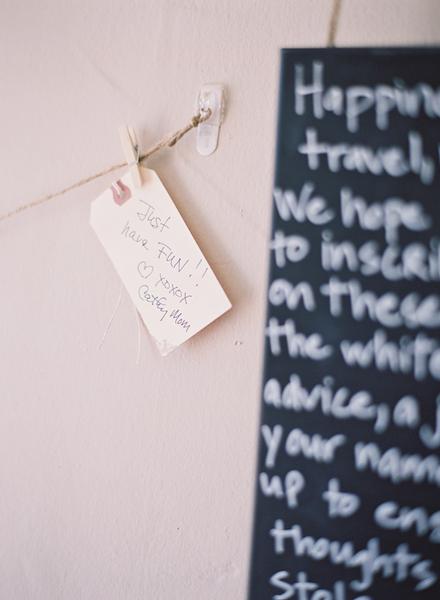 Just
have FUN!!
♡ xoxox
Mom
Happin
travel,
We hope
to inscri
on these
the white
advice, a j
your name
up to en
thoughts
stol